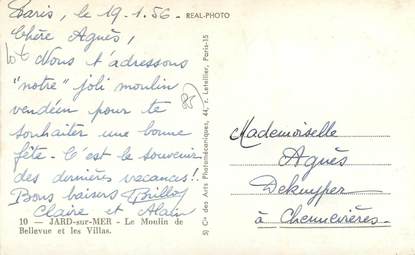 Paris, le 19.1.56 - REAL-PHOTO
Chère Agnès,
Nous t'adressons
"notre" joli moulin
vendéen pour te
souhaiter une bonne
fête. C'est le souvenir
des dernières vacances!
Bons baisers
Claire et Alain
10 - JARD-sur-MER - Le Moulin de
Bellevue et les Villas.
85
Cie des Arts Photomécaniques, 44, r. Letellier, Paris-15
Mademoiselle
Agnès
Dekuyper
à Chennevières